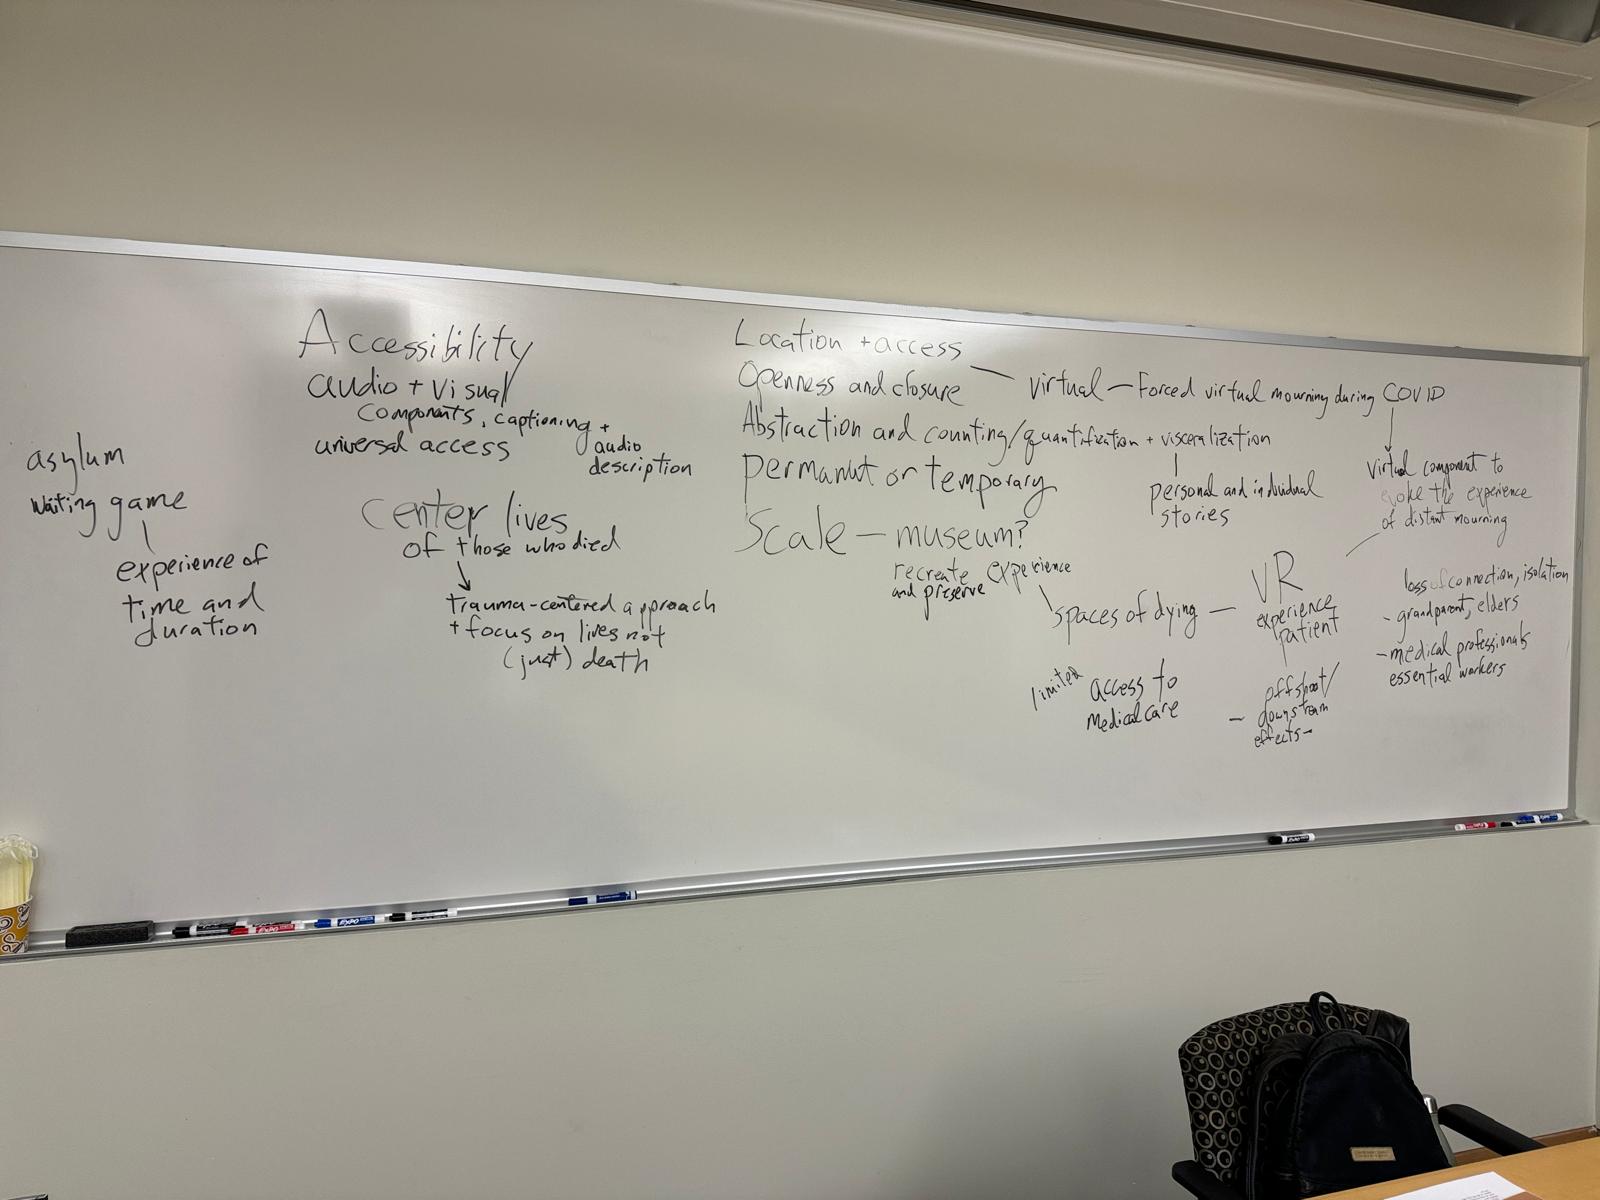 asylum
waiting game
experience of
time and
duration
Accessibility
audio + visual
components, captioning +
audio
description
universal access
center lives
of those who died
trauma-centered approach
+ focus on lives not
(just) death
Location + access
Openness and closure
virtual — Forced virtual mourning during COVID
Abstraction and counting/quantification + visceralization
personal and individual
stories
permanut or temporary
Scale — museum?
recreate experience
and preserve
virtual component to
evoke the experience
of distant mourning
spaces of dying — VR
experience
patient
limited access to
medical care
offshoot/
downstream
effects —
loss of connection, isolation
- grandparent, elders
- medical professionals
essential workers
EXPO
EXPO